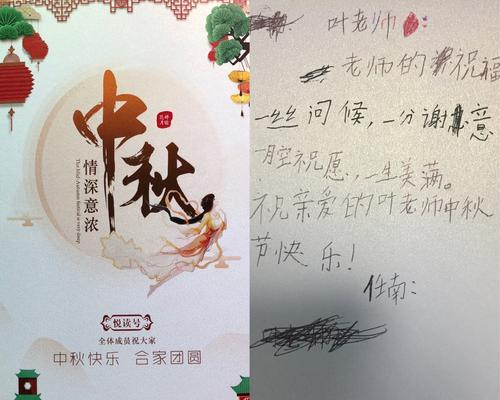 中秋
情深意浓
The Mid-Autumn festival is very deep
悦读号
全体成员祝大家
中秋快乐 合家团圆
叶老师
老师的祝福
一丝问候，一分谢意
月空祝愿，一生美满。
祝亲爱的叶老师中秋
节快乐！